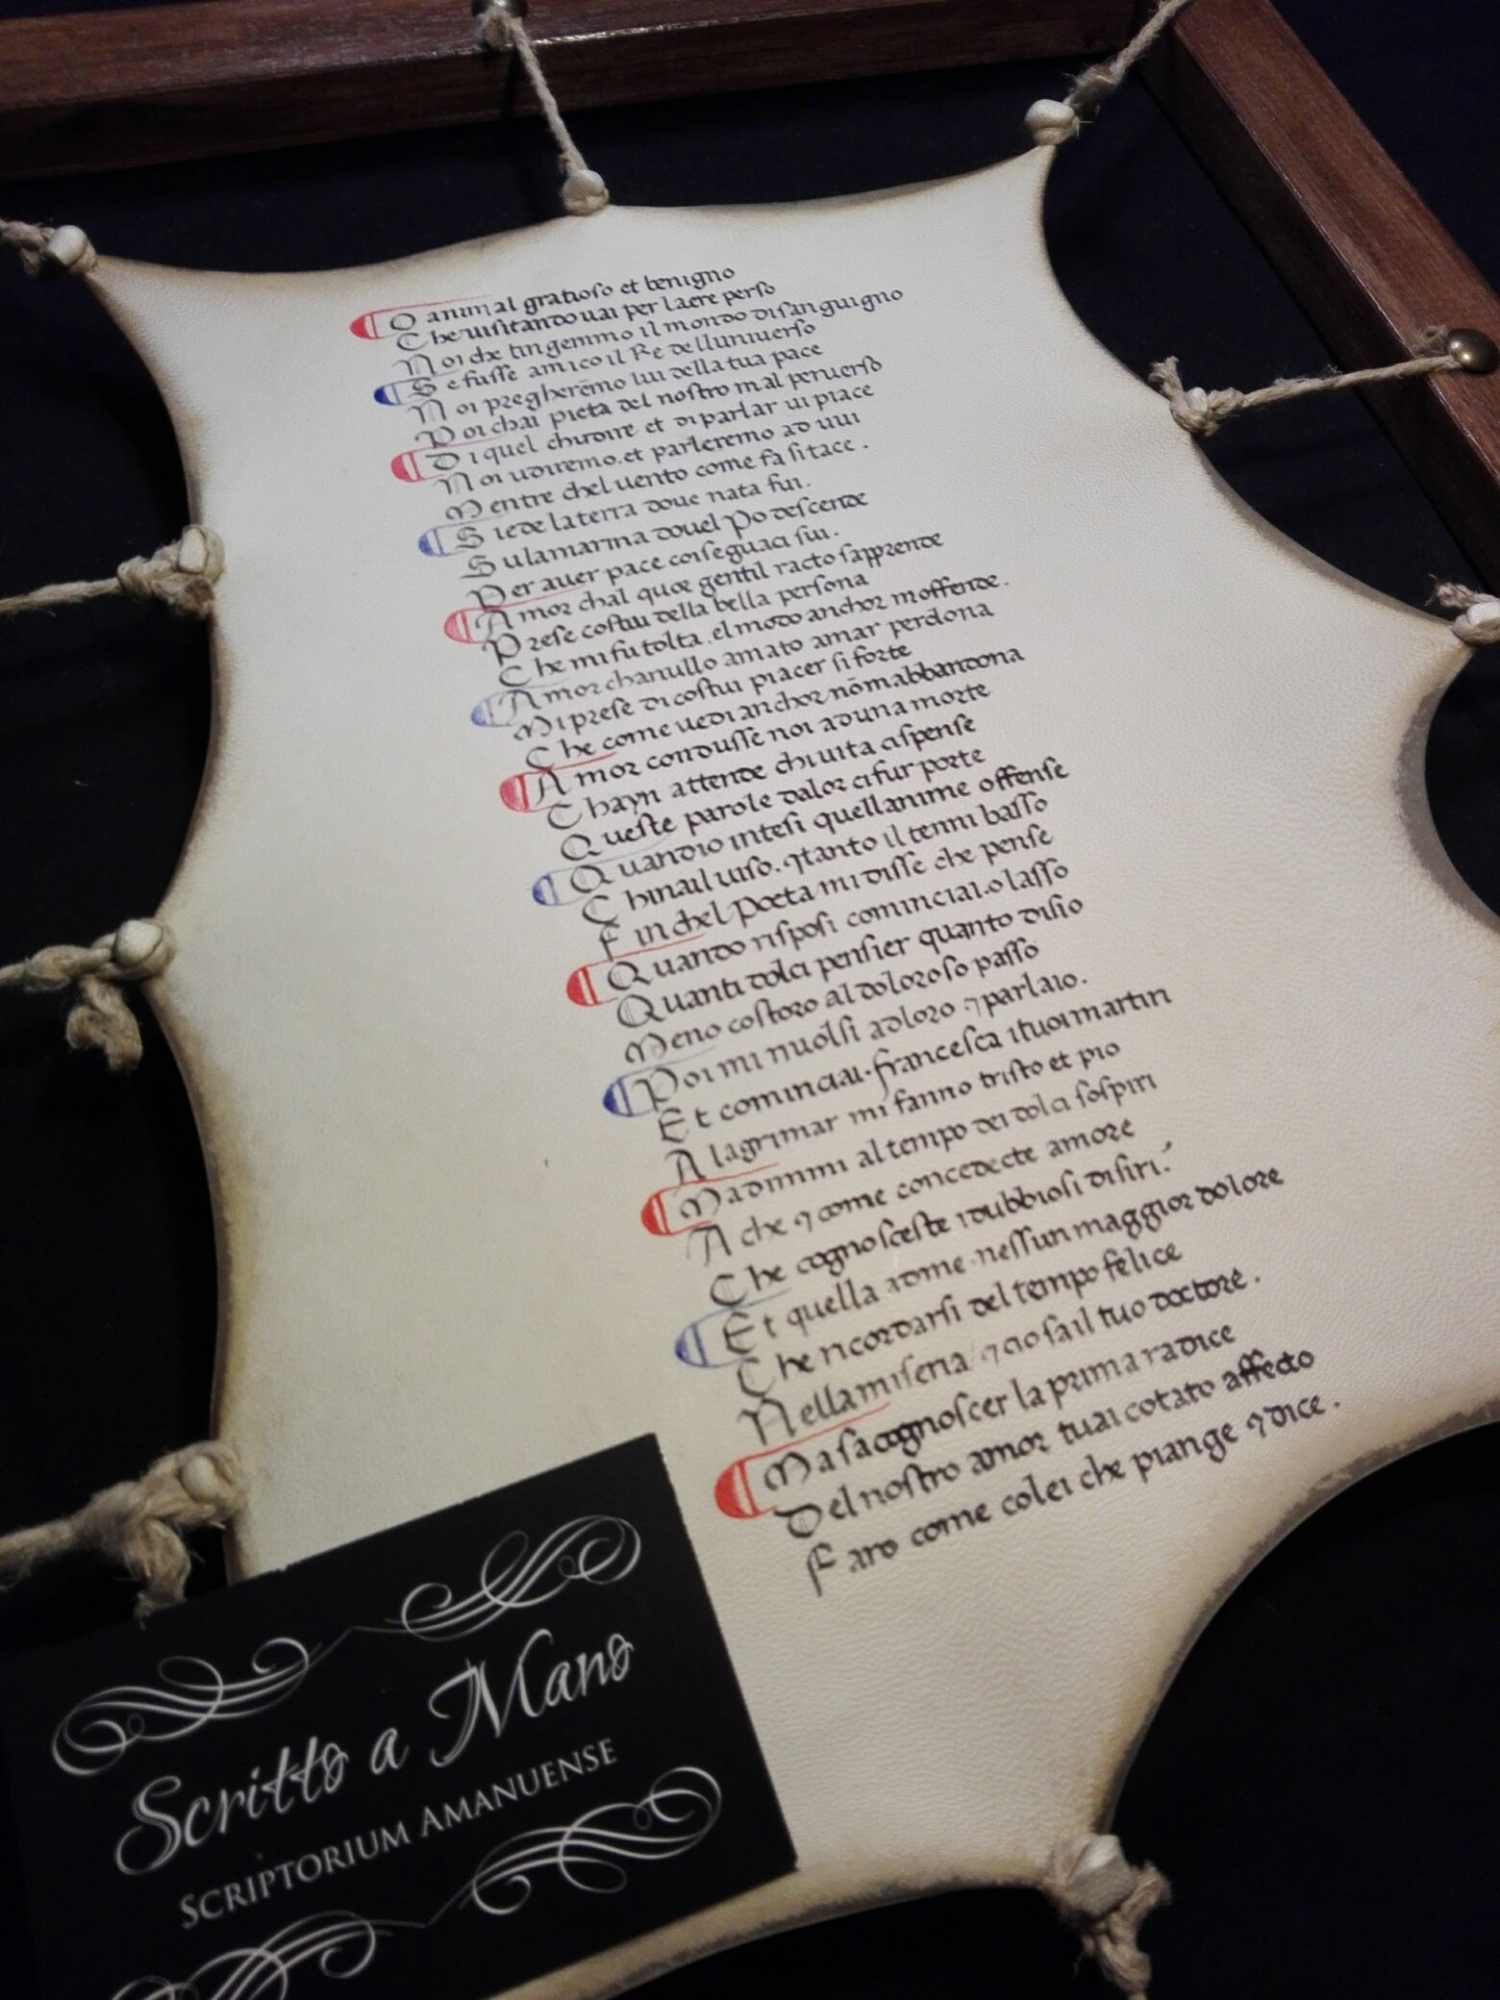 O animal gratioso et benigno
Che uisitando uai per laere perso
Noi che tingemmo il mondo disanguigno
Se fusse amico il Re delluniuerso
Noi pregherēmo lui della tua pace
Poi chai pieta del nostro mal peruerso
Di quel chudire et di parlar ui piace
Noi udiremo. et parleremo ad uui
Mentre chel uento come fa si tace .
Siede la terra doue nata fui.
Su la marina douel Po descende
Per auer pace coi seguaci sui.
Amor chal quor gentil racto sapprende
Prese costui della bella persona
Che mi fu tolta . el modo anchor moffende.
Amor chanullo amato amar perdona
Mi prese di costui piacer si forte
Che come uedi anchor nōmabbandona
Amor condusse noi aduna morte
Chayn attende chi uita cispense
Queste parole dalor ci fur porte
Quandio intesi quellanime offense
Chinail uiso. ⁊tanto il tenni basso
Fin chel Poeta mi disse che pense
Quando risposi cominciai. o lasso
Quanti dolci pensier quanto disio
Meno costoro al doloroso passo
Poi mi riuolsi adloro ⁊ parlaio.
Et cominciai. francesca ituoi martiri
A lagrimar mi fanno tristo et pio
Madimmi al tempo dei dolci sospiri
A che ⁊ come concedecte amore
Che cognosceste idubbiosi disiri.
Et quella adme. nessun maggior dolore
Che ricordarsi del tempo felice
Nella miseria / ⁊ cio sa il tuo doctore .
Ma sa cognoscer la prima radice
Del nostro amor tuai cotato affecto
Faro come colei che piange ⁊ dice .
Scritto a Mano
SCRIPTORIUM AMANUENSE